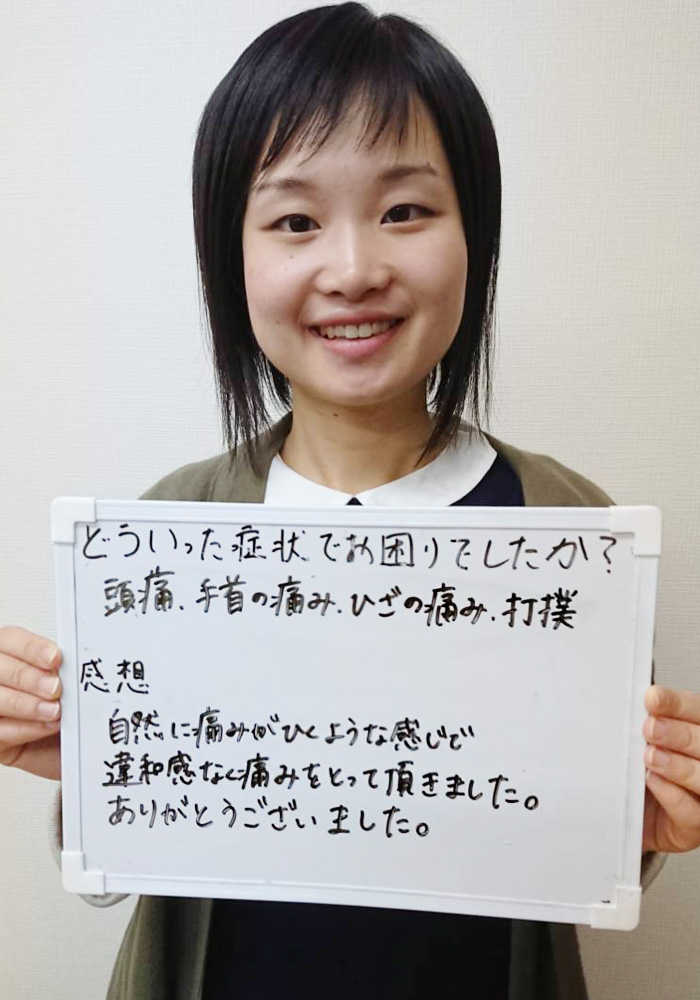 どういった症状でお困りでしたか？
頭痛、手首の痛み、ひざの痛み、打撲
感想
自然に痛みがひくような感じで
違和感なく痛みをとって頂きました。
ありがとうございました。